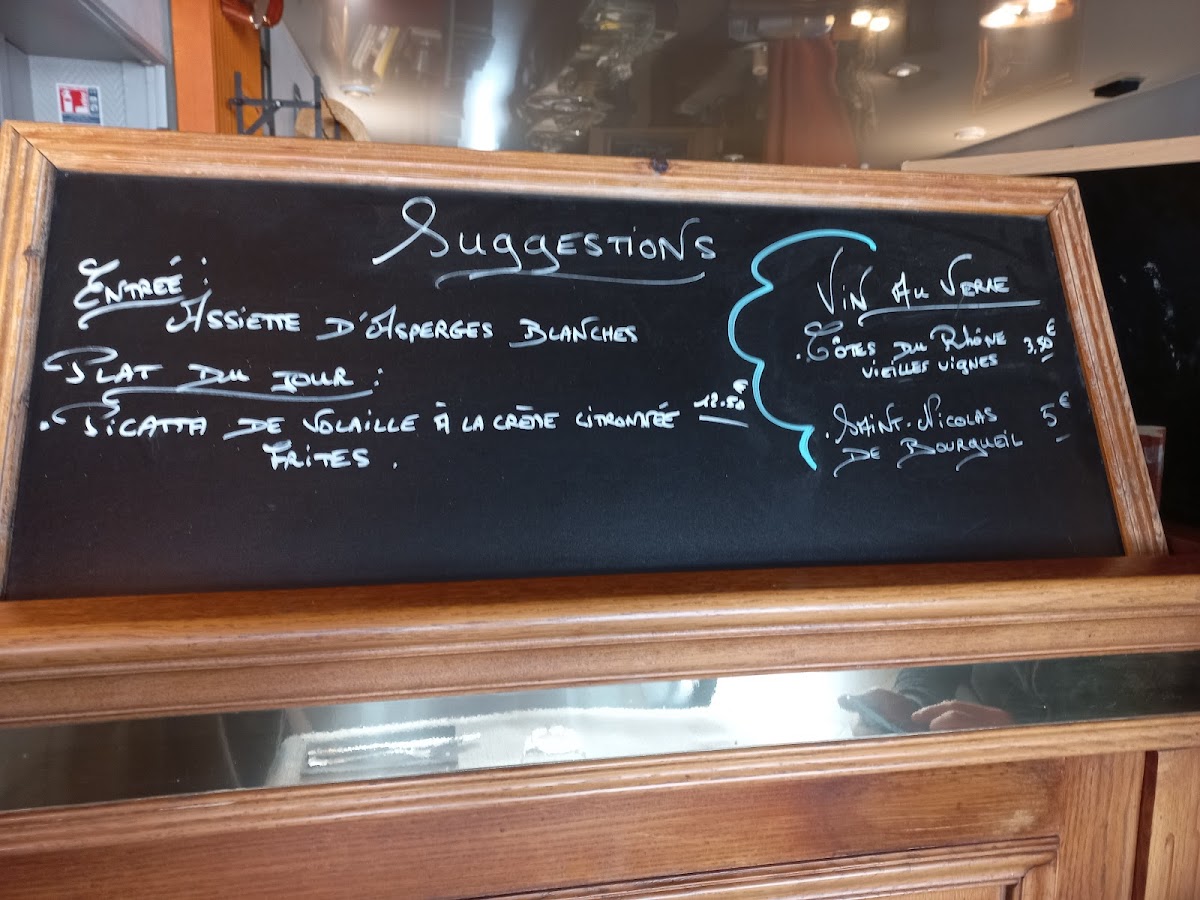 Suggestions
Entreé :
Assiette d'Asperges Blanches
Plat du jour :
. Picatta de volaille à la crème citronnée 12.50€
Frites .
Vin au Verre
. Côtes du Rhône 3,50€
vieilles vignes
. Saint-Nicolas 5€
de Bourgueil